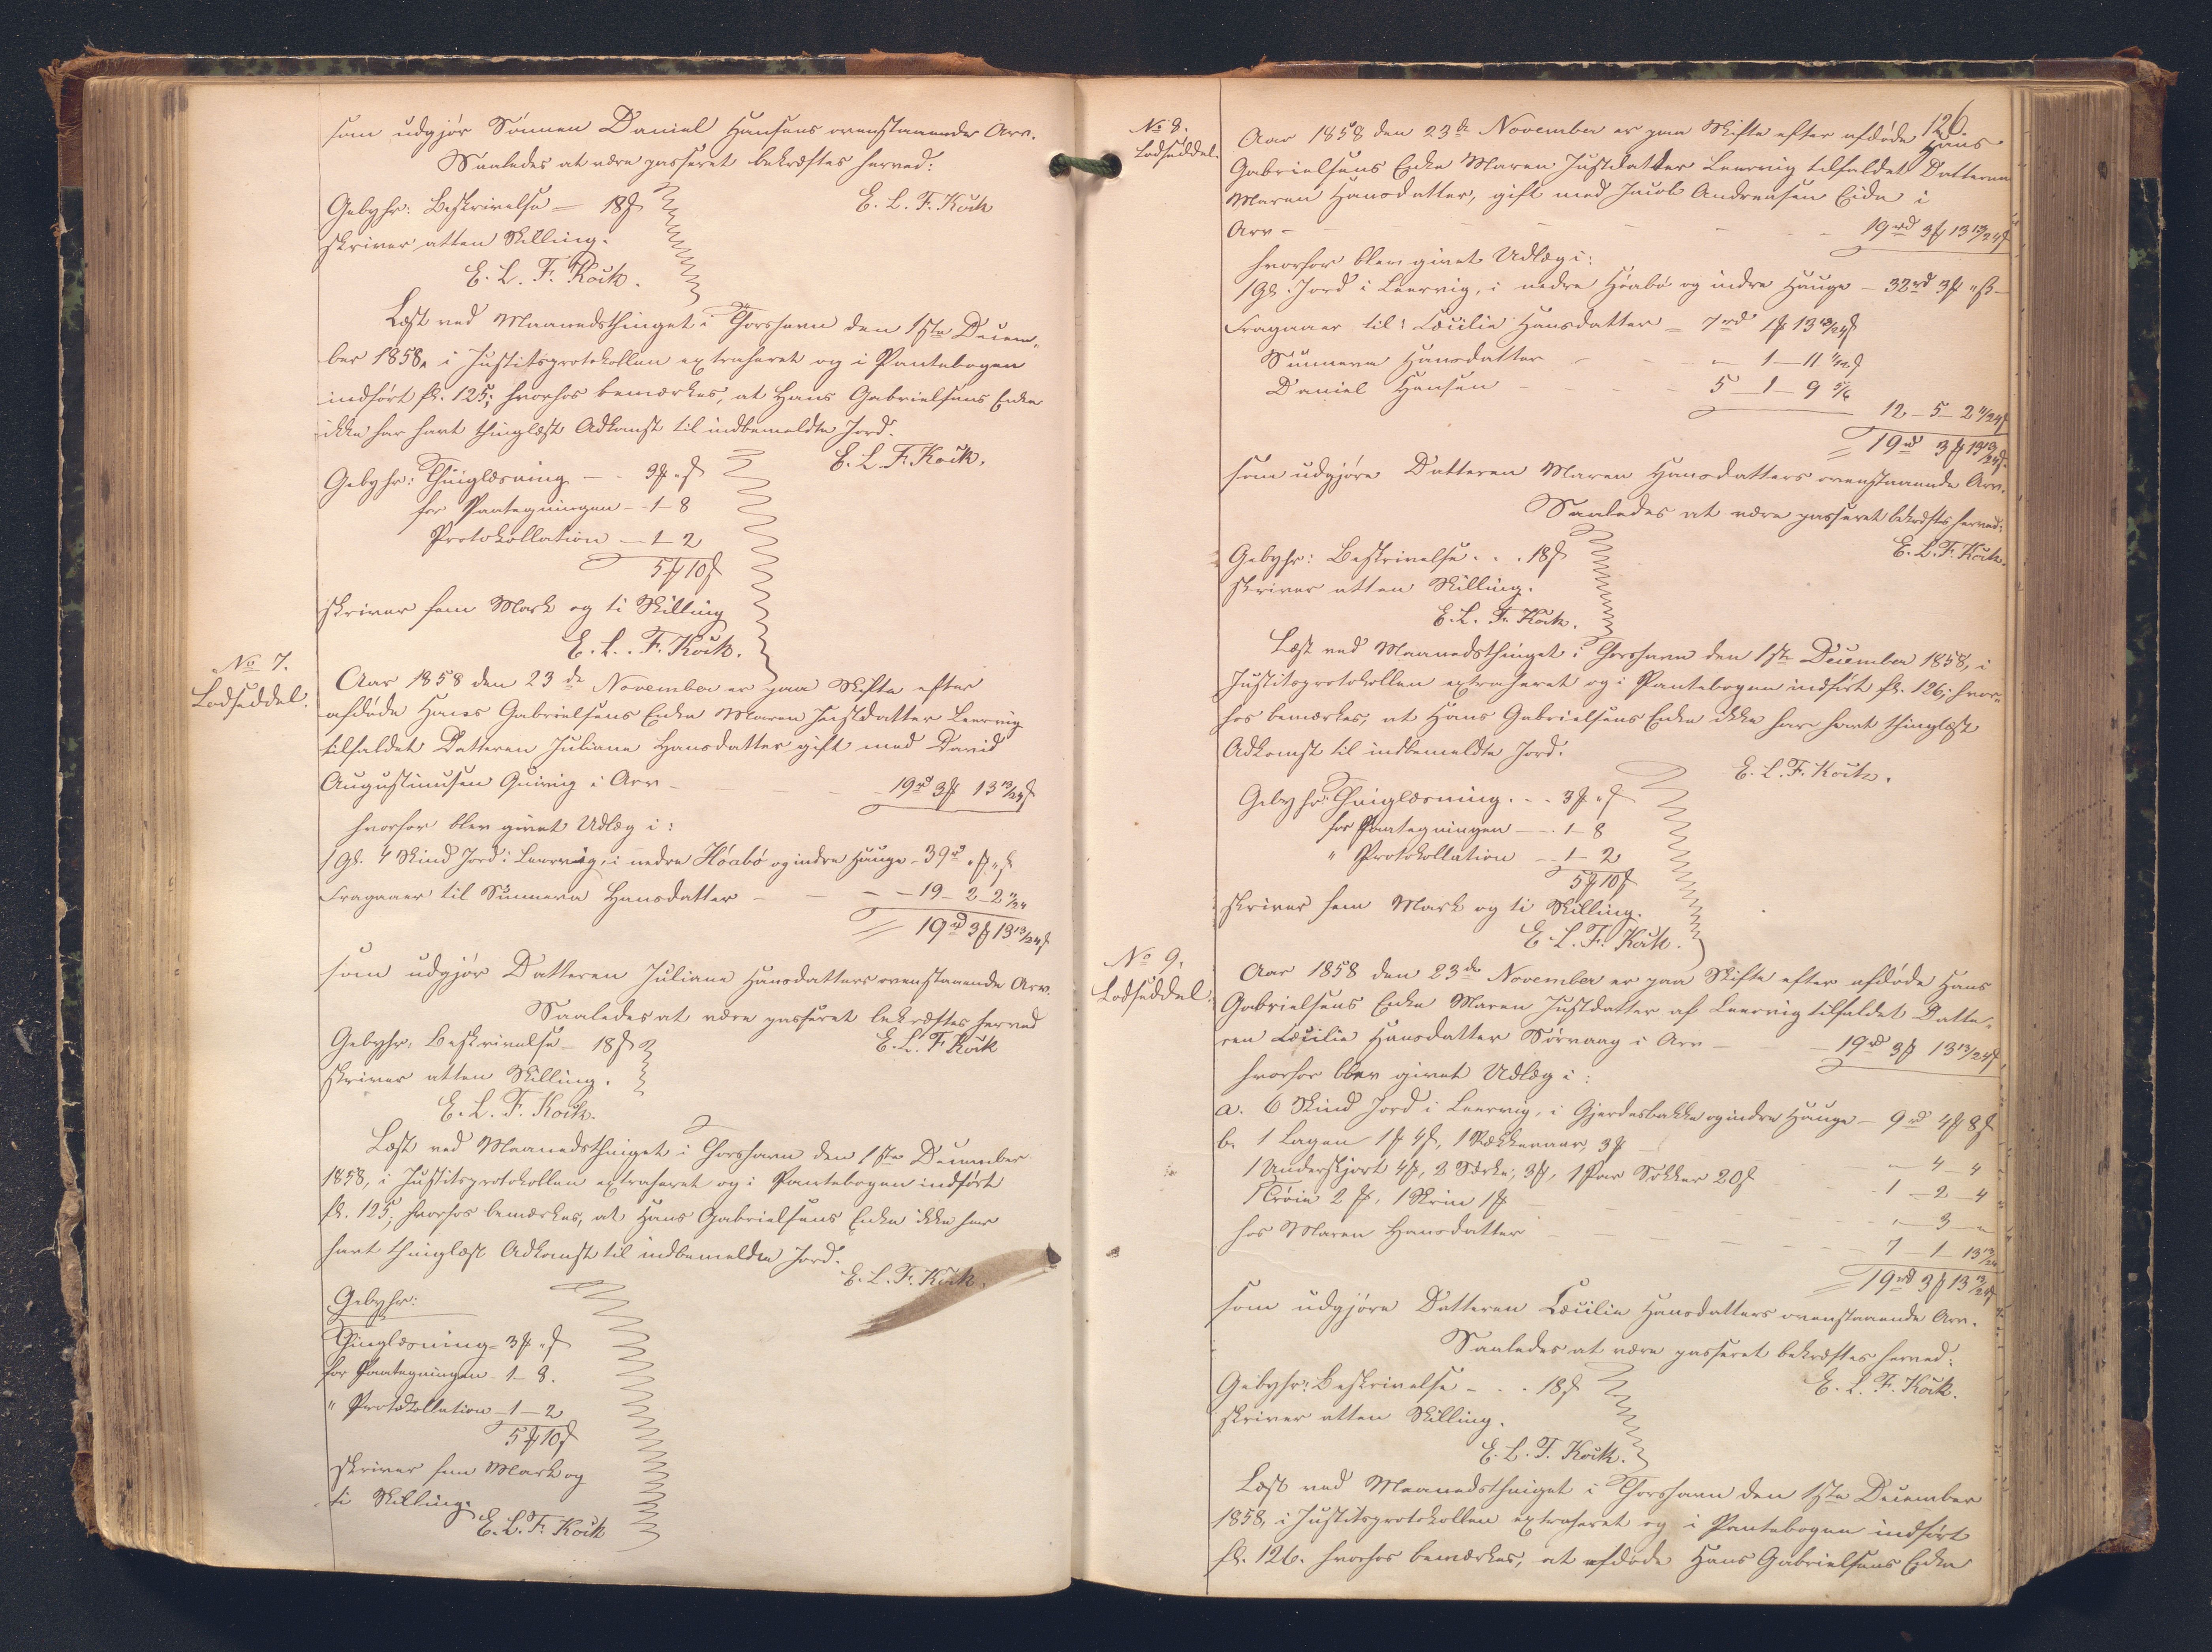 som udgjør Sønnen Daniel Hansens ovenstaaende Arv.
Saaledes at være passeret bekræftes herved:
E. L. F. Koch
Gebyhr: Beskrivelse — 18 ß
skriver atten Skilling.
E. L. F. Koch.
Læst ved Maanedsthinget i Thorshavn den 1ste Decem-
ber 1858, i Justitsprotokollen extraheret og i Pantebogen
indført fol. 125; hvorhos bemærkes, at Hans Gabrielsens Enke
ikke har havt thinglæst Adkomst til indbemeldte Jord.
E. L. F. Koch.
Gebyhr: Thinglæsning — 3 ℳ „ ß
for Paategningen — 1 — 8
Protokollation — 1 — 2
5 ℳ 10 ß
skriver fem Mark og ti Skilling
E. L. F. Koch.
No 7.
Lodseddel.
Aar 1858 den 23de November er paa Skifte efter
afdøde Hans Gabrielsens Enke Maren Justdatter Leervig
tilfaldet Datteren Juliane Hansdatter gift med David
Augustinusen Quivig i Arv — 19 rd 3 ℳ 13 13/24 ß
hvorfor blev givet Udlæg i:
1 Gl. 4 Skind Jord i Leervig, i nedre Hóabö og indre Hauge — 39 rd „ ℳ „ ß
Fragaaer til Sunneva Hansdatter — 19 — 2 — 2 11/24
= 19 rd 3 ℳ 13 13/24 ß
som udgjør Datteren Juliane Hansdatters ovenstaaende Arv.
Saaledes at være passeret bekræftes herved
E. L. F. Koch
Gebyhr: Beskrivelse — 18 ß
skriver atten Skilling.
E. L. F. Koch.
Læst ved Maanedsthinget i Thorshavn den 1ste December
1858, i Justitsprotokollen extraheret og i Pantebogen indført
fol. 125; hvorhos bemærkes, at Hans Gabrielsens Enke ikke har
havt thinglæst Adkomst til indbemeldte Jord.
E. L. F. Koch.
Gebyhr:
Thinglæsning — 3 ℳ „ ß
for Paategningen — 1 — 8.
„ Protokollation — 1 — 2
5 ℳ 10 ß
skriver fem Mark og
ti Skilling.
E. L. F. Koch
126.
No 8.
Lodseddel.
Aar 1858 den 23de November er paa Skifte efter afdøde Hans
Gabrielsens Enke Maren Justdatter Leervig tilfaldet Datteren
Maren Hansdatter, gift med Jacob Andreasen Eide i
Arv — 19 rd 3 ℳ 13 13/24 ß
hvorfor blev givet Udlæg i:
1 Gl. Jord i Leervig, i nedre Hóabö og indre Hauge — 32 rd 3 ℳ „ ß
Fragaaer til: Cæcilie Hansdatter — 7 rd 1 ℳ 13 13/24 ß
Sunneva Hansdatter — „ — 1 — 11 1/12 ß
Daniel Hansen — 5 — 1 — 9 5/6
12 — 5 — 2 11/24 ß
= 19 rd 3 ℳ 13 13/24 ß
som udgjøre Datteren Maren Hansdatters ovenstaaende Arv.
Saaledes at være passeret bekræftes herved:
E. L. F. Koch.
Gebyhr: Beskrivelse . . . 18 ß
skriver atten Skilling.
E. L. F. Koch.
Læst ved Maanedsthinget i Thorshavn den 1ste December 1858, i
Justitsprotokollen extraheret og i Pantebogen indført fol. 126; hvor-
hos bemærkes, at Hans Gabrielsens Enke ikke har havt thinglæst
Adkomst til indbemeldte Jord.
E. L. F. Koch.
Gebyhr: Thinglæsning . . . 3 ℳ „ ß
for Paategningen — 1 — 8
„ Protokollation — 1 — 2
5 ℳ 10 ß
skriver fem Mark og ti Skilling.
E. L. F. Koch.
No 9.
Lodseddel.
Aar 1858 den 23de November er paa Skifte efter afdøde Hans
Gabrielsens Enke Maren Justdatter af Leervig tilfaldet Datte-
ren Cæcilie Hansdatter Sørvaag i Arv — 19 rd 3 ℳ 13 13/24 ß
hvorfor blev givet Udlæg i:
a. 6 Skind Jord i Leervig, i Gjerdesbakke og indre Hauge — 9 rd 4 ℳ 8 ß
b. 1 Lagen 1 ℳ 4 ß, 1 Rækkevaar, 3 ℳ — „ — 4 — 4
1 Underskjørt 4 ℳ, 2 Særke, 3 ℳ, 1 Par Sokker 20 ß — 1 — 2 — 4
1 Trøie 2 ℳ, 1 Skrin 1 ℳ — „ — 3 — „
hos Maren Hansdatter — 7 — 1 — 13 13/24
= 19 rd 3 ℳ 13 13/24 ß
som udgjøre Datteren Cæcilie Hansdatters ovenstaaende Arv.
Saaledes at være passeret bekræftes herved:
E. L. F. Koch.
Gebyhr: Beskrivelse — . . 18 ß
skriver atten Skilling.
E. L. F. Koch.
Læst ved Maanedsthinget i Thorshavn den 1ste December
1858, i Justitsprotokollen extraheret og i Pantebogen indført
fol. 126. hvorhos bemærkes, at afdøde Hans Gabrielsens Enke